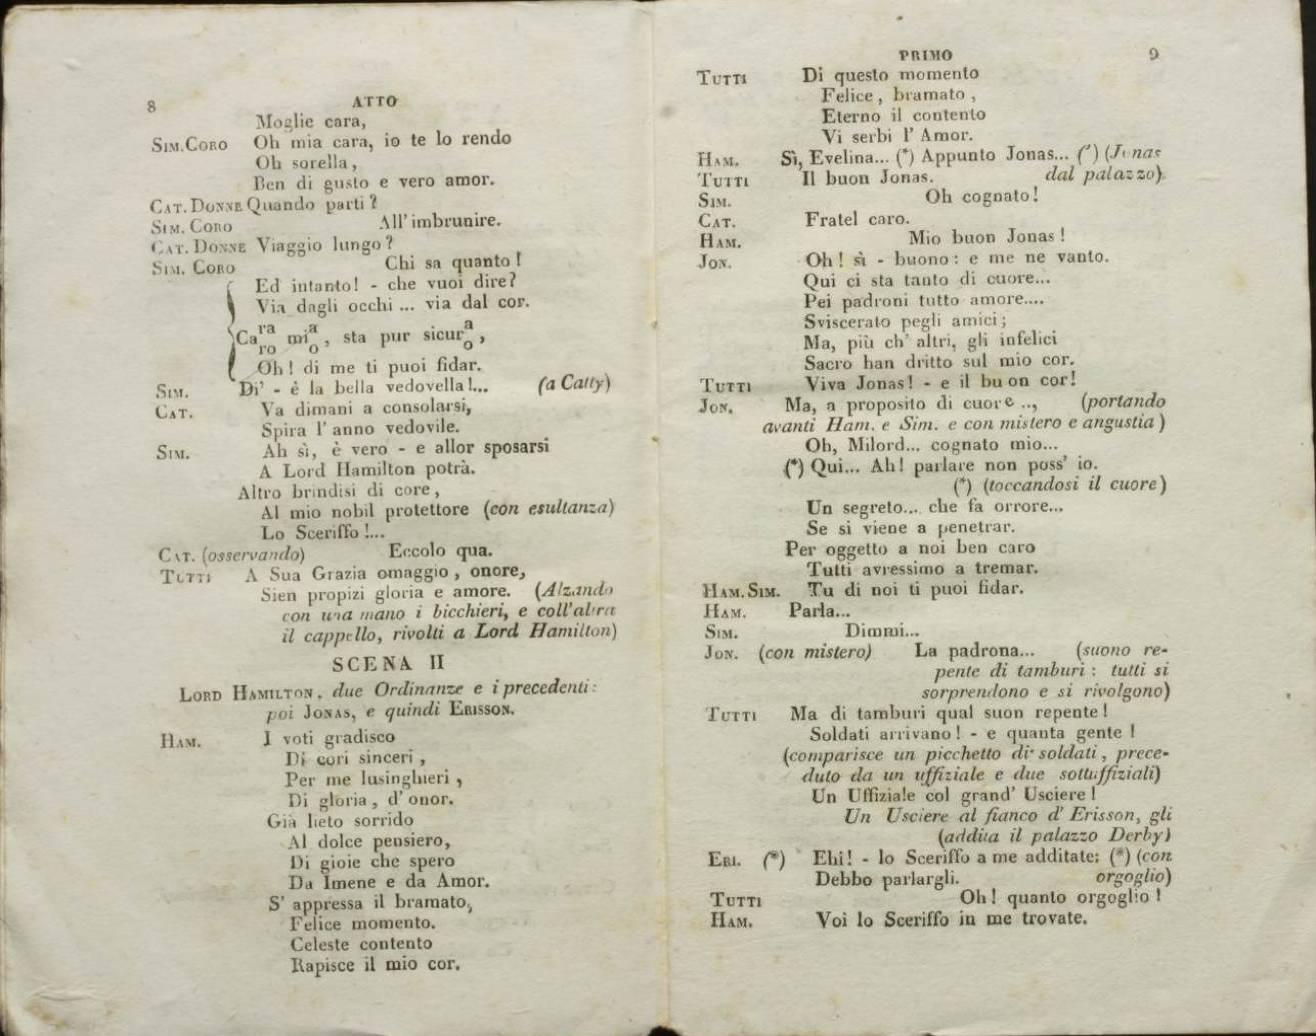 8 ATTO
Moglie cara,
SIM. CORO Oh mia cara, io te lo rendo
Oh sorella,
Ben di gusto e vero amor.
CAT. DONNE Quando parti?
SIM. CORO All' imbrunire.
CAT. DONNE Viaggio lungo?
SIM. CORO Chi sa quanto!
Ed intanto! - che vuoi dire?
Via dagli occhi ... via dal cor.
Ca ra ro mi a o, sta pur sicur a o,
Oh! di me ti puoi fidar.
SIM. Di' - è la bella vedovella!... (a Catty)
CAT. Va dimani a consolarsi,
Spira l' anno vedovile.
SIM. Ah sì, è vero - e allor sposarsi
A Lord Hamilton potrà.
Altro brindisi di core,
Al mio nobil protettore (con esultanza)
Lo Sceriffo!...
CAT. (osservando) Eccolo qua.
TUTTI A Sua Grazia omaggio, onore,
Sien propizi gloria e amore. (Alzando
con una mano i bicchieri, e coll'altra
il cappello, rivolti a Lord Hamilton)
SCENA II
LORD HAMILTON, due Ordinanze e i precedenti:
poi JONAS, e quindi ERISSON.
HAM. I voti gradisco
Di cori sinceri,
Per me lusinghieri,
Di gloria, d' onor.
Già lieto sorrido
Al dolce pensiero,
Di gioie che spero
Da Imene e da Amor.
S' appressa il bramato,
Felice momento.
Celeste contento
Rapisce il mio cor.
PRIMO 9
TUTTI Di questo momento
Felice, bramato,
Eterno il contento
Vi serbi l' Amor.
HAM. Sì, Evelina... (*) Appunto Jonas... (*) (Jonas
TUTTI Il buon Jonas. dal palazzo).
SIM. Oh cognato!
CAT. Fratel caro.
HAM. Mio buon Jonas!
JON. Oh! sì - buono: e me ne vanto.
Qui ci sta tanto di cuore...
Pei padroni tutto amore....
Sviscerato pegli amici;
Ma, più ch' altri, gli infelici
Sacro han dritto sul mio cor.
TUTTI Viva Jonas! - e il buon cor!
JON. Ma, a proposito di cuore .., (portando
avanti Ham. e Sim. e con mistero e angustia)
Oh, Milord... cognato mio...
(*) Qui... Ah! parlare non poss' io.
(*) (toccandosi il cuore)
Un segreto... che fa orrore...
Se si viene a penetrar.
Per oggetto a noi ben caro
Tutti avressimo a tremar.
HAM. SIM. Tu di noi ti puoi fidar.
HAM. Parla...
SIM. Dimmi...
JON. (con mistero) La padrona... (suono re-
pente di tamburi: tutti si
sorprendono e si rivolgono)
TUTTI Ma di tamburi qual suon repente!
Soldati arrivano! - e quanta gente!
(comparisce un picchetto di soldati, prece-
duto da un uffiziale e due sottuffiziali)
Un Uffiziale col grand' Usciere!
Un Usciere al fianco d' Erisson, gli
(addita il palazzo Derby)
ERI. (*) Ehi! - lo Sceriffo a me additate: (*) (con
Debbo parlargli. orgoglio)
TUTTI Oh! quanto orgoglio!
HAM. Voi lo Sceriffo in me trovate.